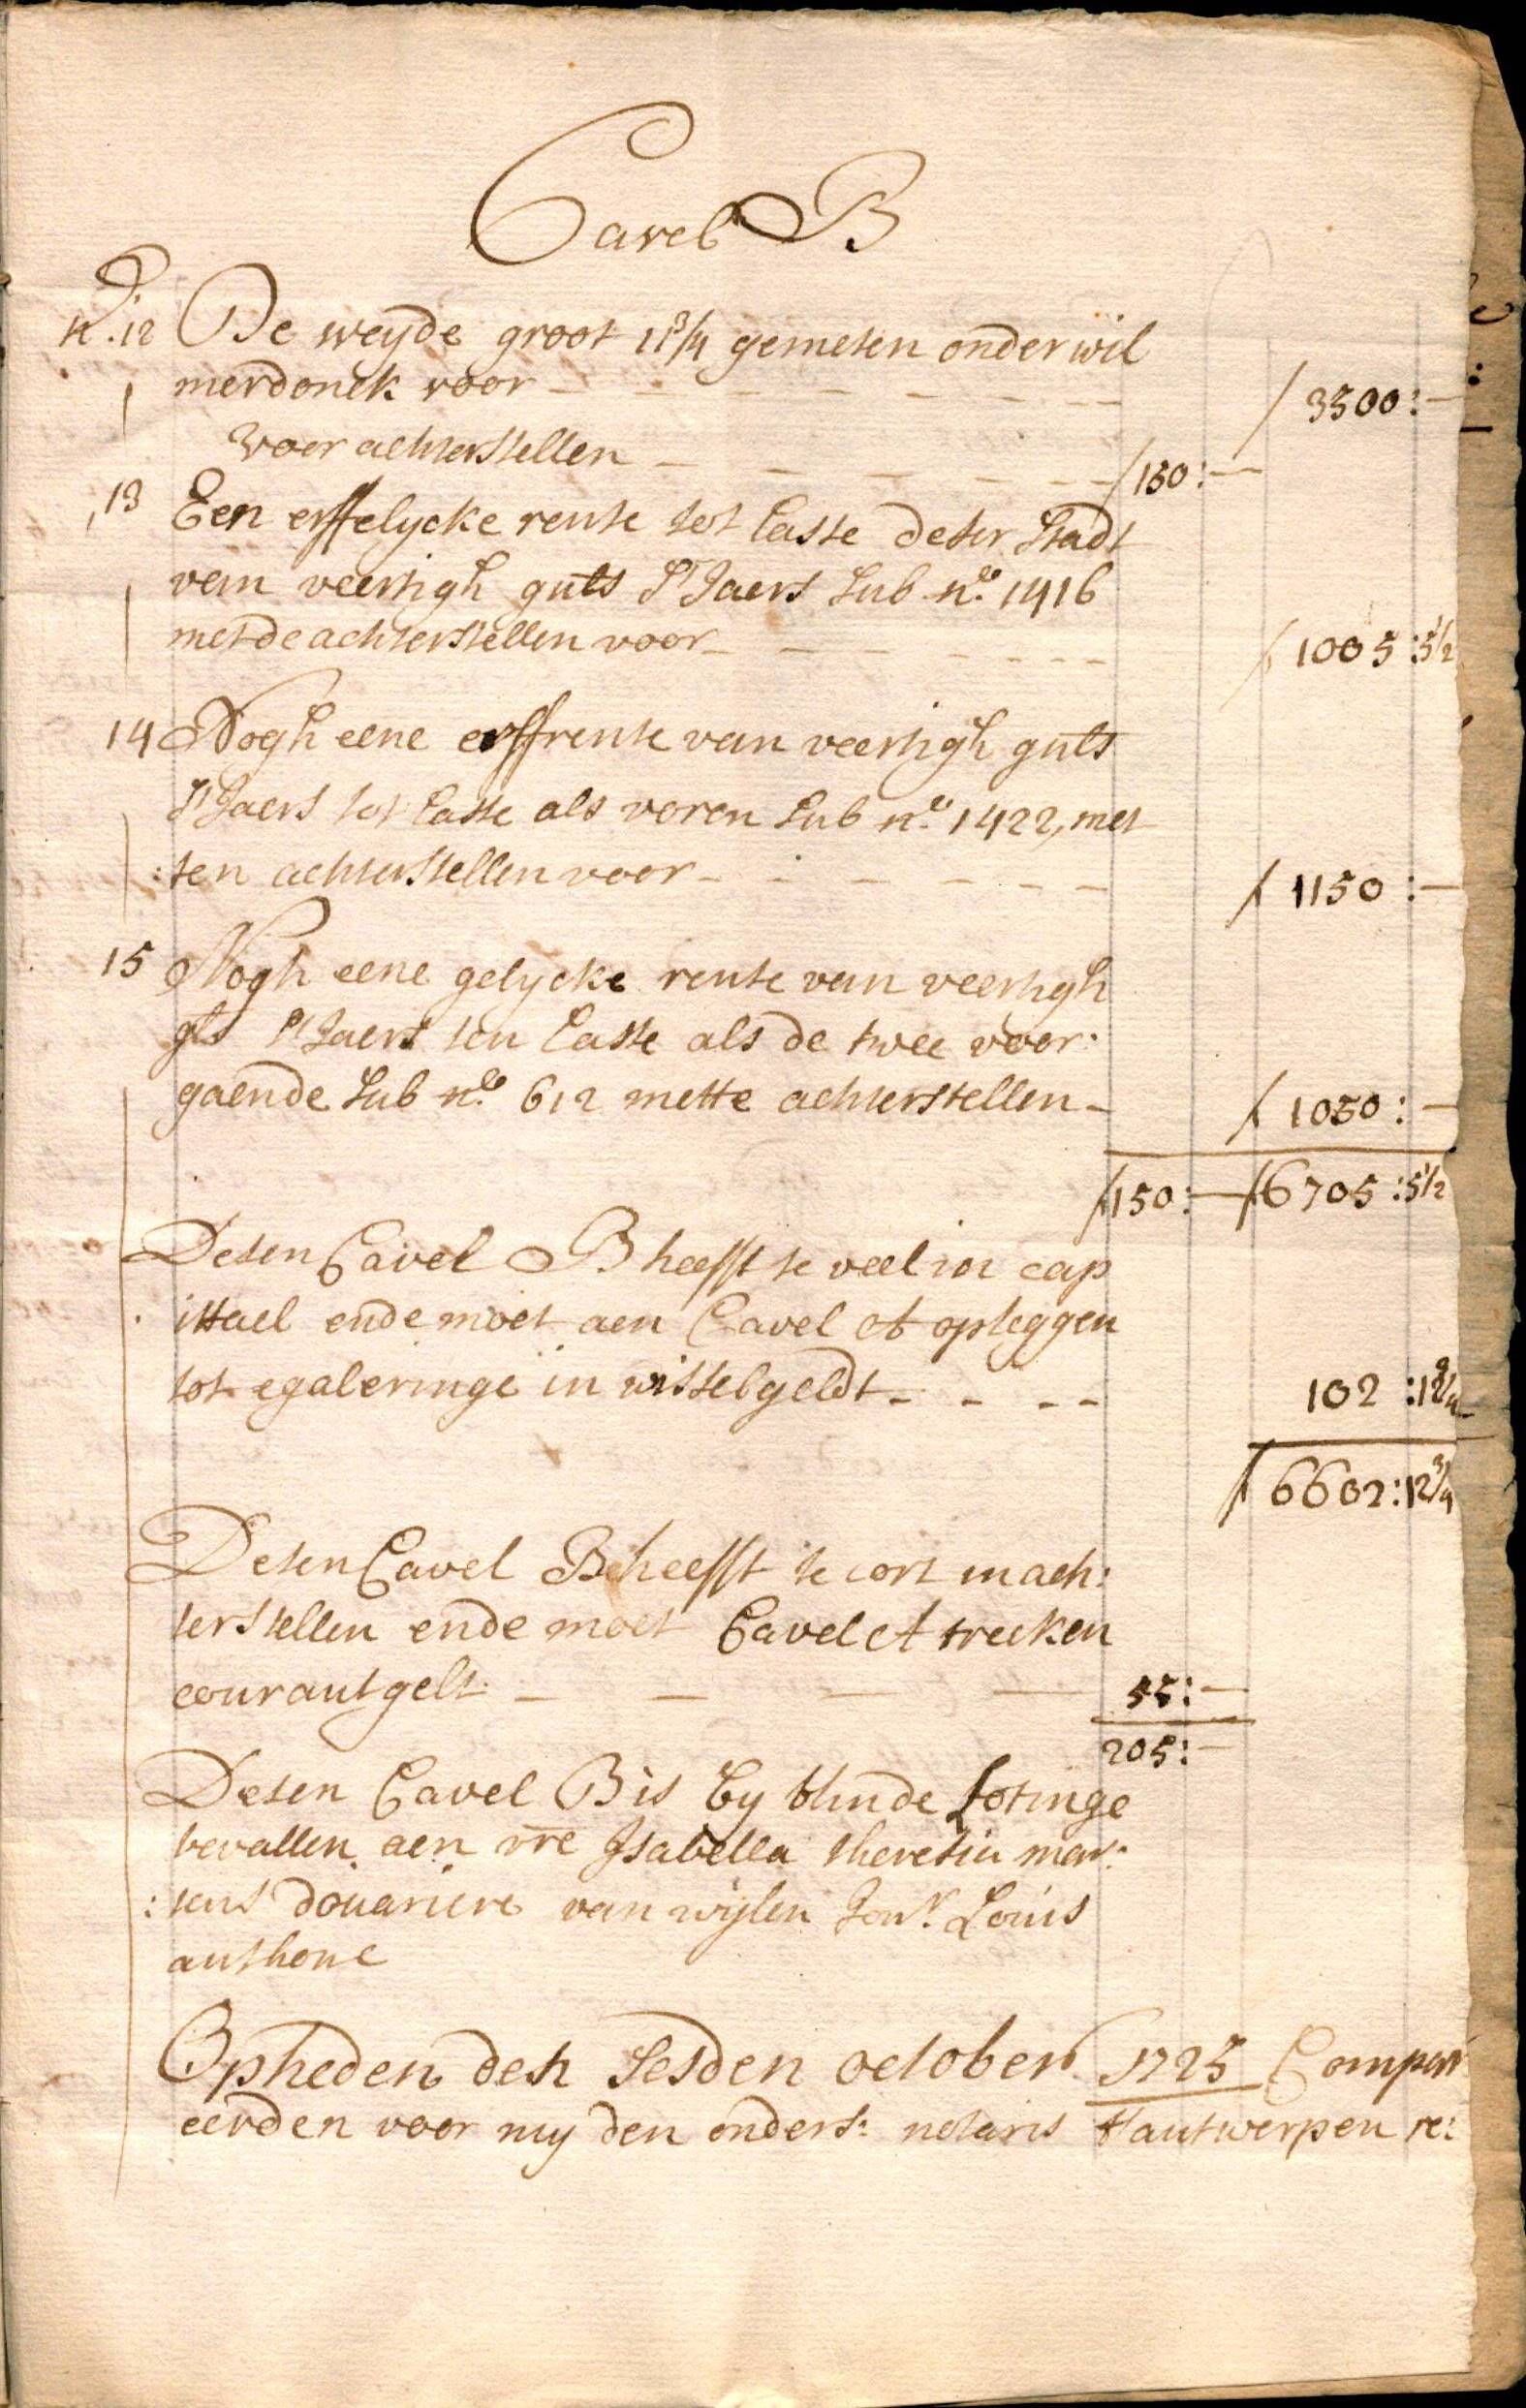 Cavel B
N.° 12 De weyde groot 11 3/4 gemeten onder wil
merdonck voor - - - - - - - ƒ 3500:—
Voor achterstellen - - - - - - ƒ 150:—
13 Een erffelycke rente tot laste deser stadt
van veertigh guls s'Jaers sub n.° 1416
met de achterstellen voor - - - - - - ƒ 1005:5½
14 Nogh eene erffrente van veertigh guls
s'Jaers tot laste als voren sub n.° 1422, met
:ten achterstellen voor - - - - - - ƒ 1150:—
15 Nogh eene gelycke rente van veertigh
gls s'Jaers ten laste als de twee voor:
gaende sub n.° 612 mette achterstellen - ƒ 1050:—
ƒ 150:— ƒ 6705:5½
Desen Cavel B heefft te veel in cap
ittael ende moet aen Cavel A opleggen
tot egaleringe in wisselgeldt - - - - 102:12¾
ƒ 6602:12¾
Desen Cavel B heefft te cort in ach:
terstellen ende moet Cavel A trecken
courant gelt - - - - 55:—
205:—
Desen Cavel B is by blinde Lotinge
bevallen aen vre Isabella theresia mar:
:tens douariere van wijlen Jonr. Louis
anthone
Op heden den sesden october 1725 Compar
eerden voor my den onders: notaris t'antwerpen re: